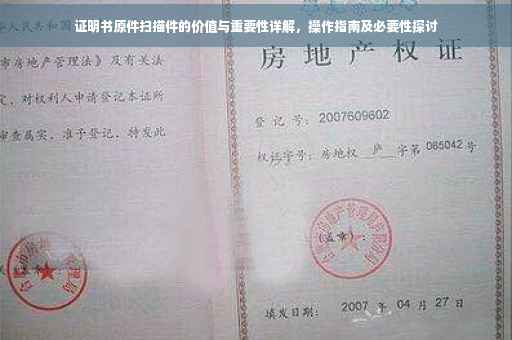 证明书原件扫描件的价值与重要性详解，操作指南及必要性探讨
华人民共和国
市房地产管理法》及有关法
定，对权利人申请登记本证所
审查属实，准予登记，特发此
房地产权证
登记号：2007609602
权证字号：房地权 庐 字第 065042 号
(盖章)：
填发日期：2007 年 04 月 27 日